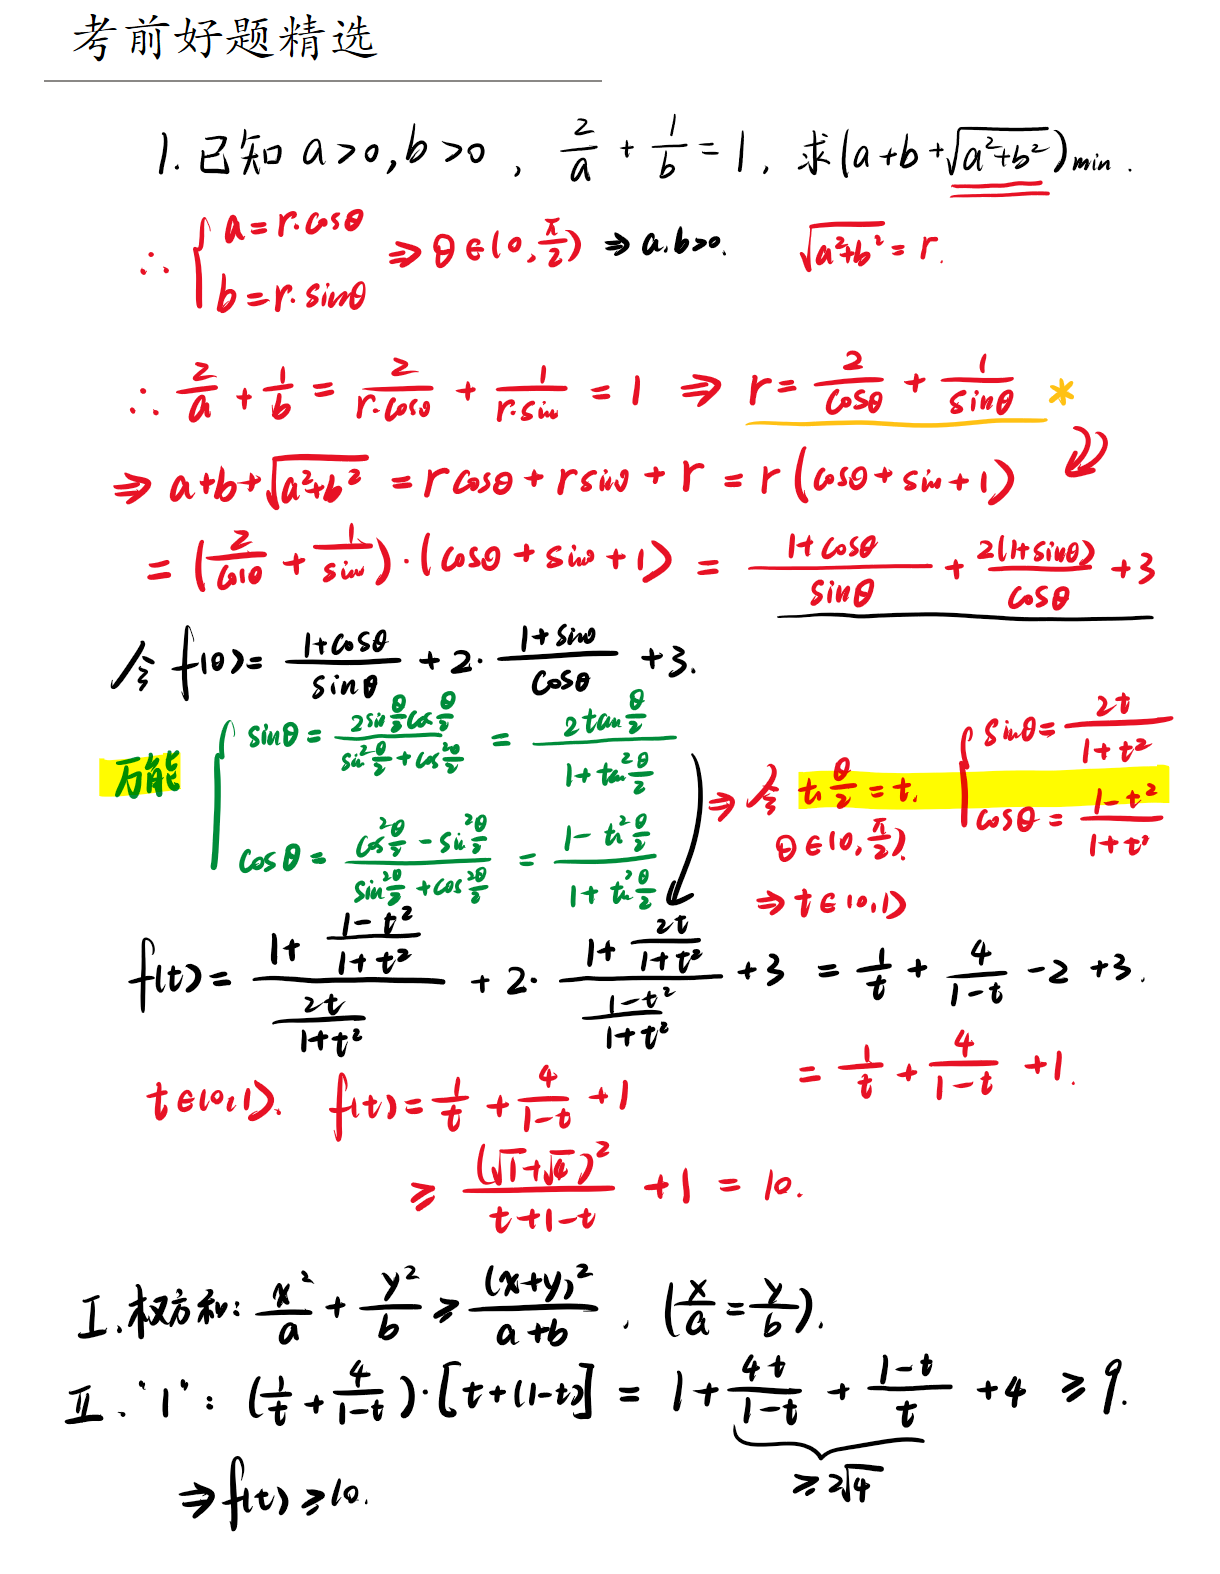 考前好题精选
1. 已知 a>0, b>0, 2/a + 1/b = 1, 求(a+b+√(a²+b²))min.
∴ { a=r·cosθ b=r·sinθ ⇒ θ∈(0, π/2) ⇒ a.b>0. √(a²+b²) = r.
∴ 2/a + 1/b = 2/(r·cosθ) + 1/(r·sin) = 1 ⇒ r = 2/cosθ + 1/sinθ *
⇒ a+b+√(a²+b²) = rcosθ + rsinθ + r = r(cosθ + sin + 1)
= (2/cosθ + 1/sin)·(cosθ + sin + 1) = (1+cosθ)/sinθ + 2(1+sinθ)/cosθ + 3
令 f(θ) = (1+cosθ)/sinθ + 2·(1+sinθ)/cosθ + 3.
万能 { sinθ = (2sin θ/2 cos θ/2)/(sin² θ/2 + cos² θ/2) = (2tan θ/2)/(1+tan² θ/2)
cosθ = (cos² θ/2 - sin² θ/2)/(sin² θ/2 + cos² θ/2) = (1-tan² θ/2)/(1+tan² θ/2)
⇒ 令 tan θ/2 = t. { sinθ = 2t/(1+t²) cosθ = (1-t²)/(1+t²)
θ∈(0, π/2).
⇒ t∈(0,1)
f(t) = (1 + (1-t²)/(1+t²))/(2t/(1+t²)) + 2·(1 + 2t/(1+t²))/((1-t²)/(1+t²)) + 3 = 1/t + 4/(1-t) - 2 + 3.
= 1/t + 4/(1-t) + 1.
t∈(0,1). f(t) = 1/t + 4/(1-t) + 1
≥ (√1+√4)²/(t+1-t) + 1 = 10.
I. 权方和: x²/a + y²/b ≥ (x+y)²/(a+b). (x/a = y/b).
II. "1": (1/t + 4/(1-t))·[t+(1-t)] = 1 + 4t/(1-t) + (1-t)/t + 4 ≥ 9.
≥2√4
⇒ f(t) ≥ 10.